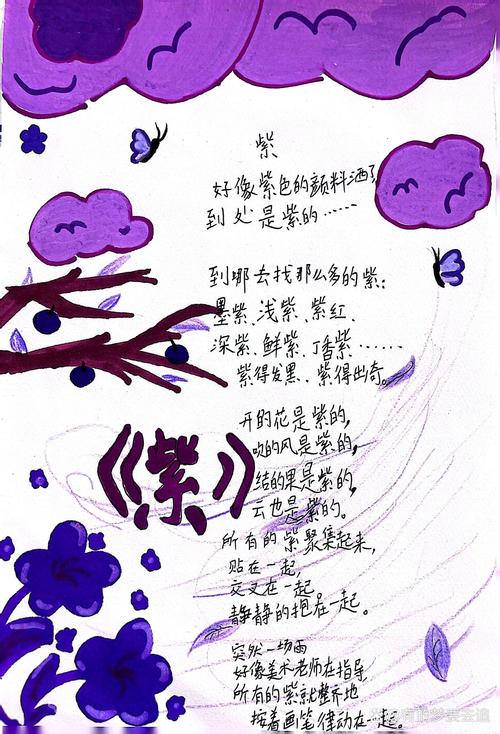 紫
好像紫色的颜料洒了
到处是紫的……
到哪去找那么多的紫：
墨紫、浅紫、紫红、
深紫、鲜紫、丁香紫……
紫得发黑、紫得出奇。
开的花是紫的，
吹的风是紫的，
结的果是紫的，
云也是紫的。
《紫》
所有的紫聚集起来，
贴在一起，
交叉在一起，
静静的抱在一起。
突然一场雨
好像美术老师在指导，
所有的紫就整齐地
按着画笔律动在一起。